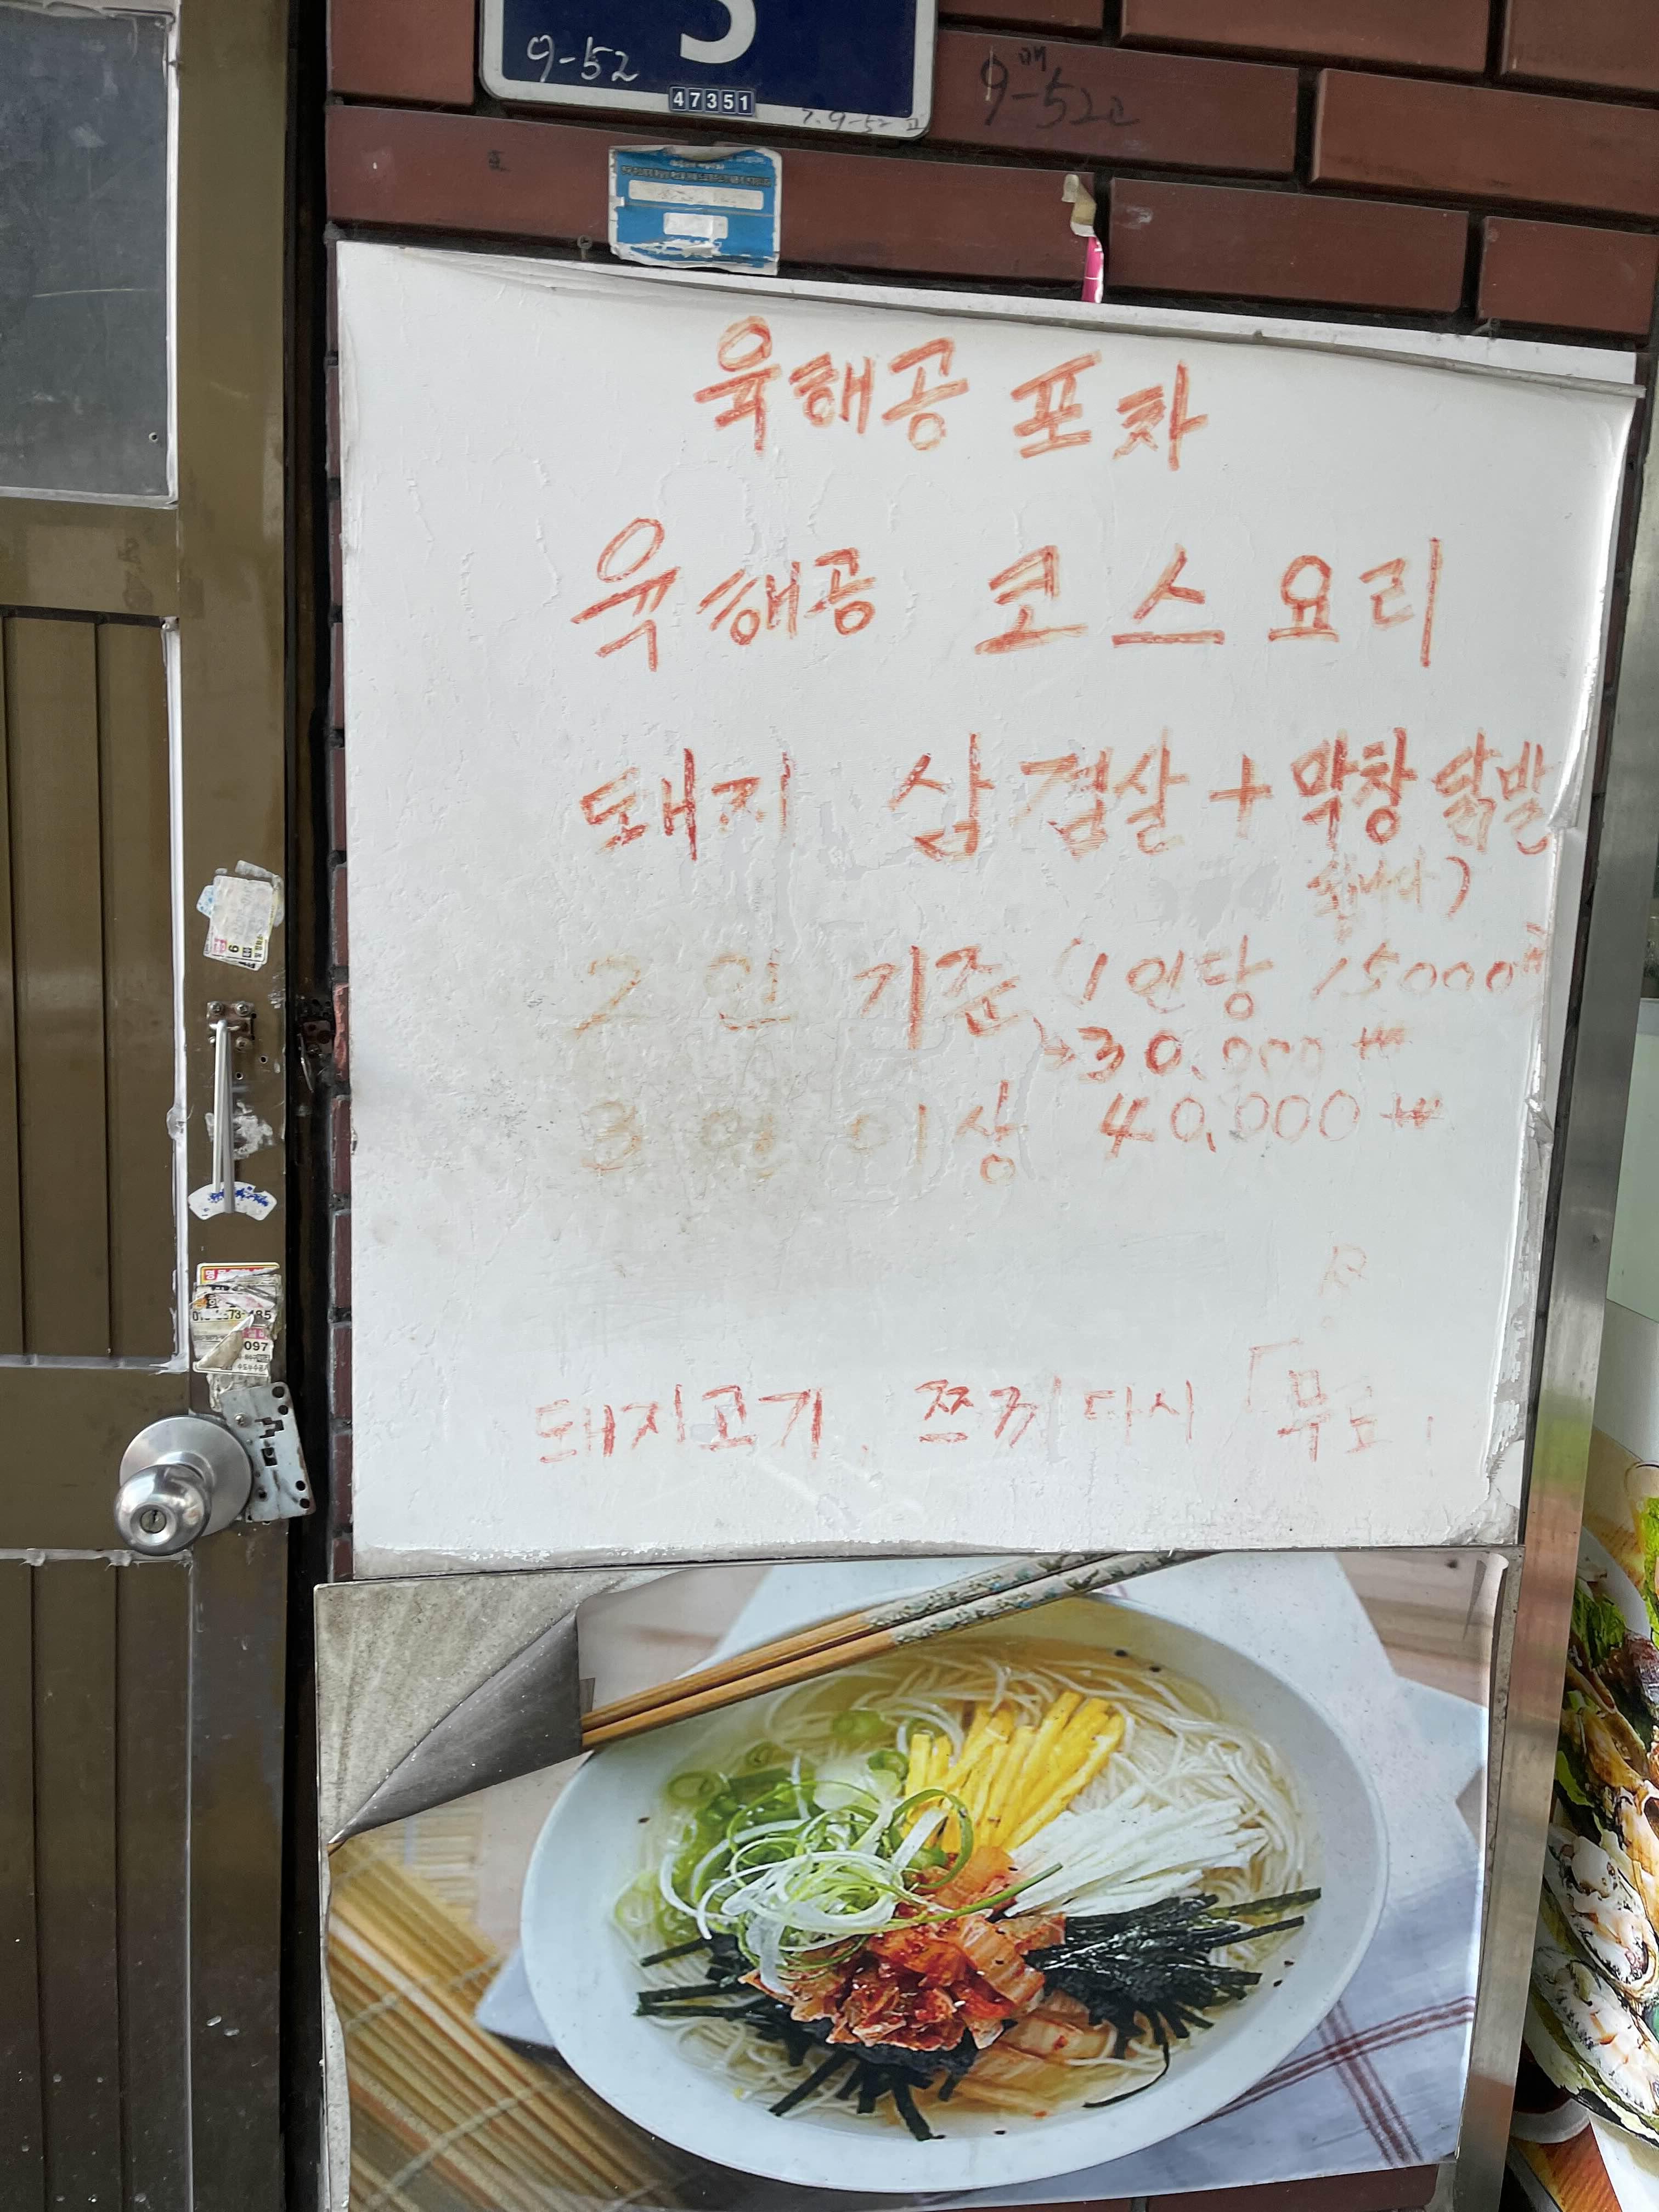 9-52
47351
7. 9-52
9-52
육해공 포차
육해공 코스요리
돼지 삼겹살 + 막창 닭발
2인 기준 (1인당 15000₩
→30.000 ₩
3인 이상 40.000 ₩
돼지고기, 쯔끼다시 「무료
097